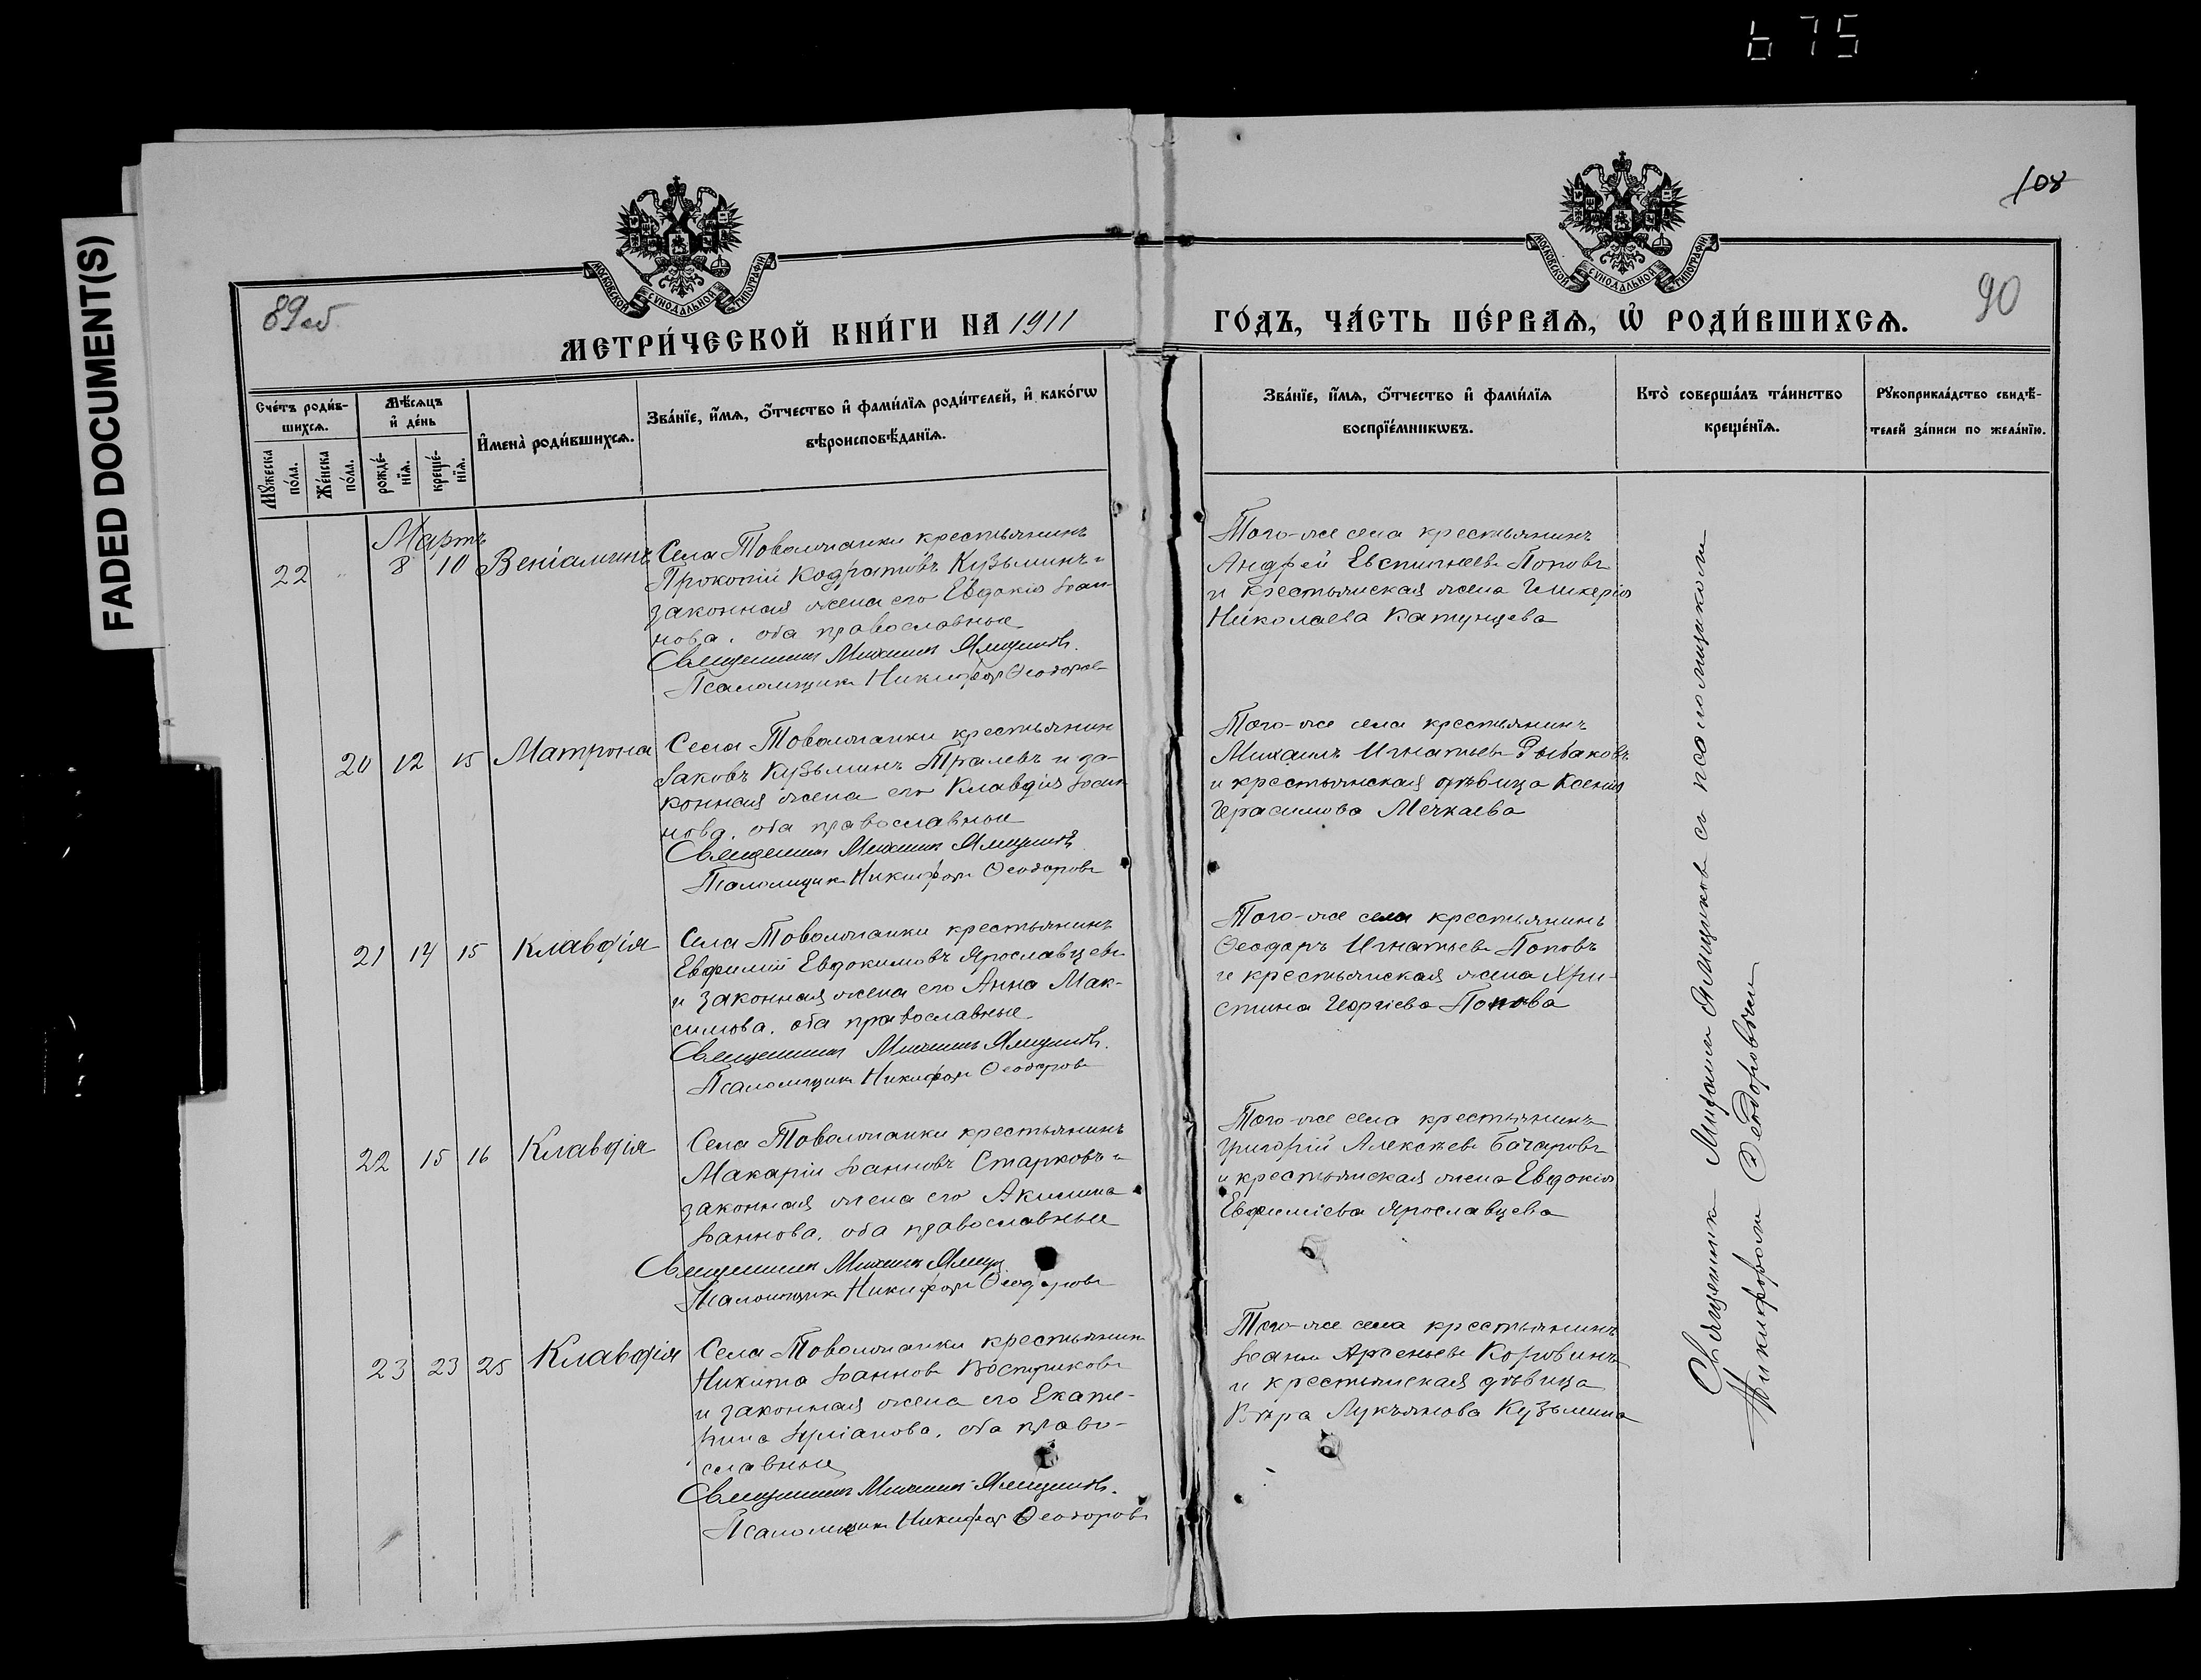 675
FADED DOCUMENT(S)
108
89 об.
90
МОСКОВСКОЙ СѴНОДАЛЬНОЙ ТИПОГРАФІИ
МОСКОВСКОЙ СѴНОДАЛЬНОЙ ТИПОГРАФІИ
МЕТРИ́ЧЕСКОЙ КНИ́ГИ НА 1911
ГО́ДЪ, ЧА́СТЬ ПЕ́РВАѦ, Ѡ҆ РОДИ́ВШИХСѦ.
Сче́тъ роди́в-
шихсѧ.
Мꙋ́жеска
по́ла.
Же́нска
по́ла.
Мѣ́сѧцъ
и҆ де́нь
рожде́-
нїѧ.
креще́-
нїѧ.
И҆мена̀ роди́вшихсѧ.
Зва́нїе, и҆́мѧ, ѻ҆́тчество и҆ фами́лїѧ роди́телей, и҆ како́гѡ
вѣроисповѣ́данїѧ.
Зва́нїе, и҆́мѧ, ѻ҆́тчество и҆ фами́лїѧ
воспрїе́мникѡвъ.
Кто̀ соверша́лъ та́инство
креще́нїѧ.
Рꙋкоприкла́дство свидѣ́-
телей за́писи по жела́нїю.
Мартъ
22 " 8 10 Веніаминъ
Села Товолжанки крестьянинъ
Прокопій Кодратовъ Кузьминъ и
законная жена его Евдокія Іоан-
нова, оба православные
Священникъ Михаилъ Ямщиковъ.
Псаломщикъ Никифоръ Ѳеодоровъ
Того-же села крестьянинъ
Андрей Евстигнеевъ Поповъ
и крестьянская жена Гликерія
Николаева Катунцева
20 12 15 Матрона
Села Товолжанки крестьянин
Іаковъ Кузьминъ Тралевъ и за-
конная жена его Клавдія Іоан-
нова, оба православные
Священникъ Михаилъ Ямщиковъ
Псаломщикъ Никифоръ Ѳеодоровъ
Того-же села крестьянинъ
Михаилъ Игнатьевъ Рыбаковъ
и крестьянская дѣвица Ксенія
Герасимова Мечкаева
21 14 15 Клавдія
Села Товолжанки крестьянинъ
Евфимій Евдокимовъ Ярославцевъ
и законная жена его Анна Мак-
симова, оба православные
Священникъ Михаилъ Ямщиковъ.
Псаломщикъ Никифоръ Ѳеодоровъ
Того-же села крестьянинъ
Ѳеодоръ Игнатьевъ Поповъ
и крестьянская жена Хри-
стина Георгіева Попова
22 15 16 Клавдія
Села Товолжанки крестьянинъ
Макарій Іоанновъ Старковъ и
законная жена его Акилина
Іоаннова, оба православные
Священникъ Михаилъ Ямщ
Псаломщикъ Никифоръ Ѳеодоровъ
Того-же села крестьянинъ
Григорій Алексѣевъ Бачаровъ
и крестьянская жена Евдокія
Евфиміева Ярославцева
23 23 25 Клавдія
Села Товолжанки крестьянинъ
Никита Іоанновъ Востриковъ
и законная жена его Екате-
рина Іуліанова, оба право-
славные
Священникъ Михаилъ Ямщиковъ.
Псаломщикъ Никифоръ Ѳеодоровъ
Того-же села крестьянинъ
Іоаннъ Арсеньевъ Коровинъ
и крестьянская дѣвица
Вѣра Лукъянова Кузьмина
Священникъ Михаилъ Ямщиковъ съ псаломщикомъ
Никифоромъ Ѳеодоровымъ